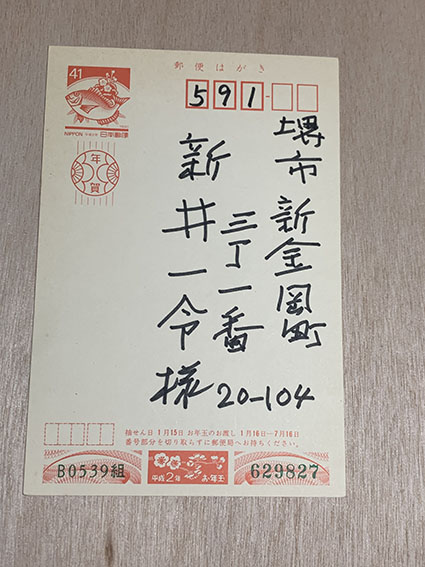 郵便はがき
41
NIPPON
日本郵便
年賀
591
堺市新金岡町
三丁一番
20-104
新井一令様
抽せん日 1月15日 お年玉のお渡し 1月16日―7月16日
番号部分を切り取らずに郵便局へお持ちください。
B0539組
平成2年
お年玉
629827